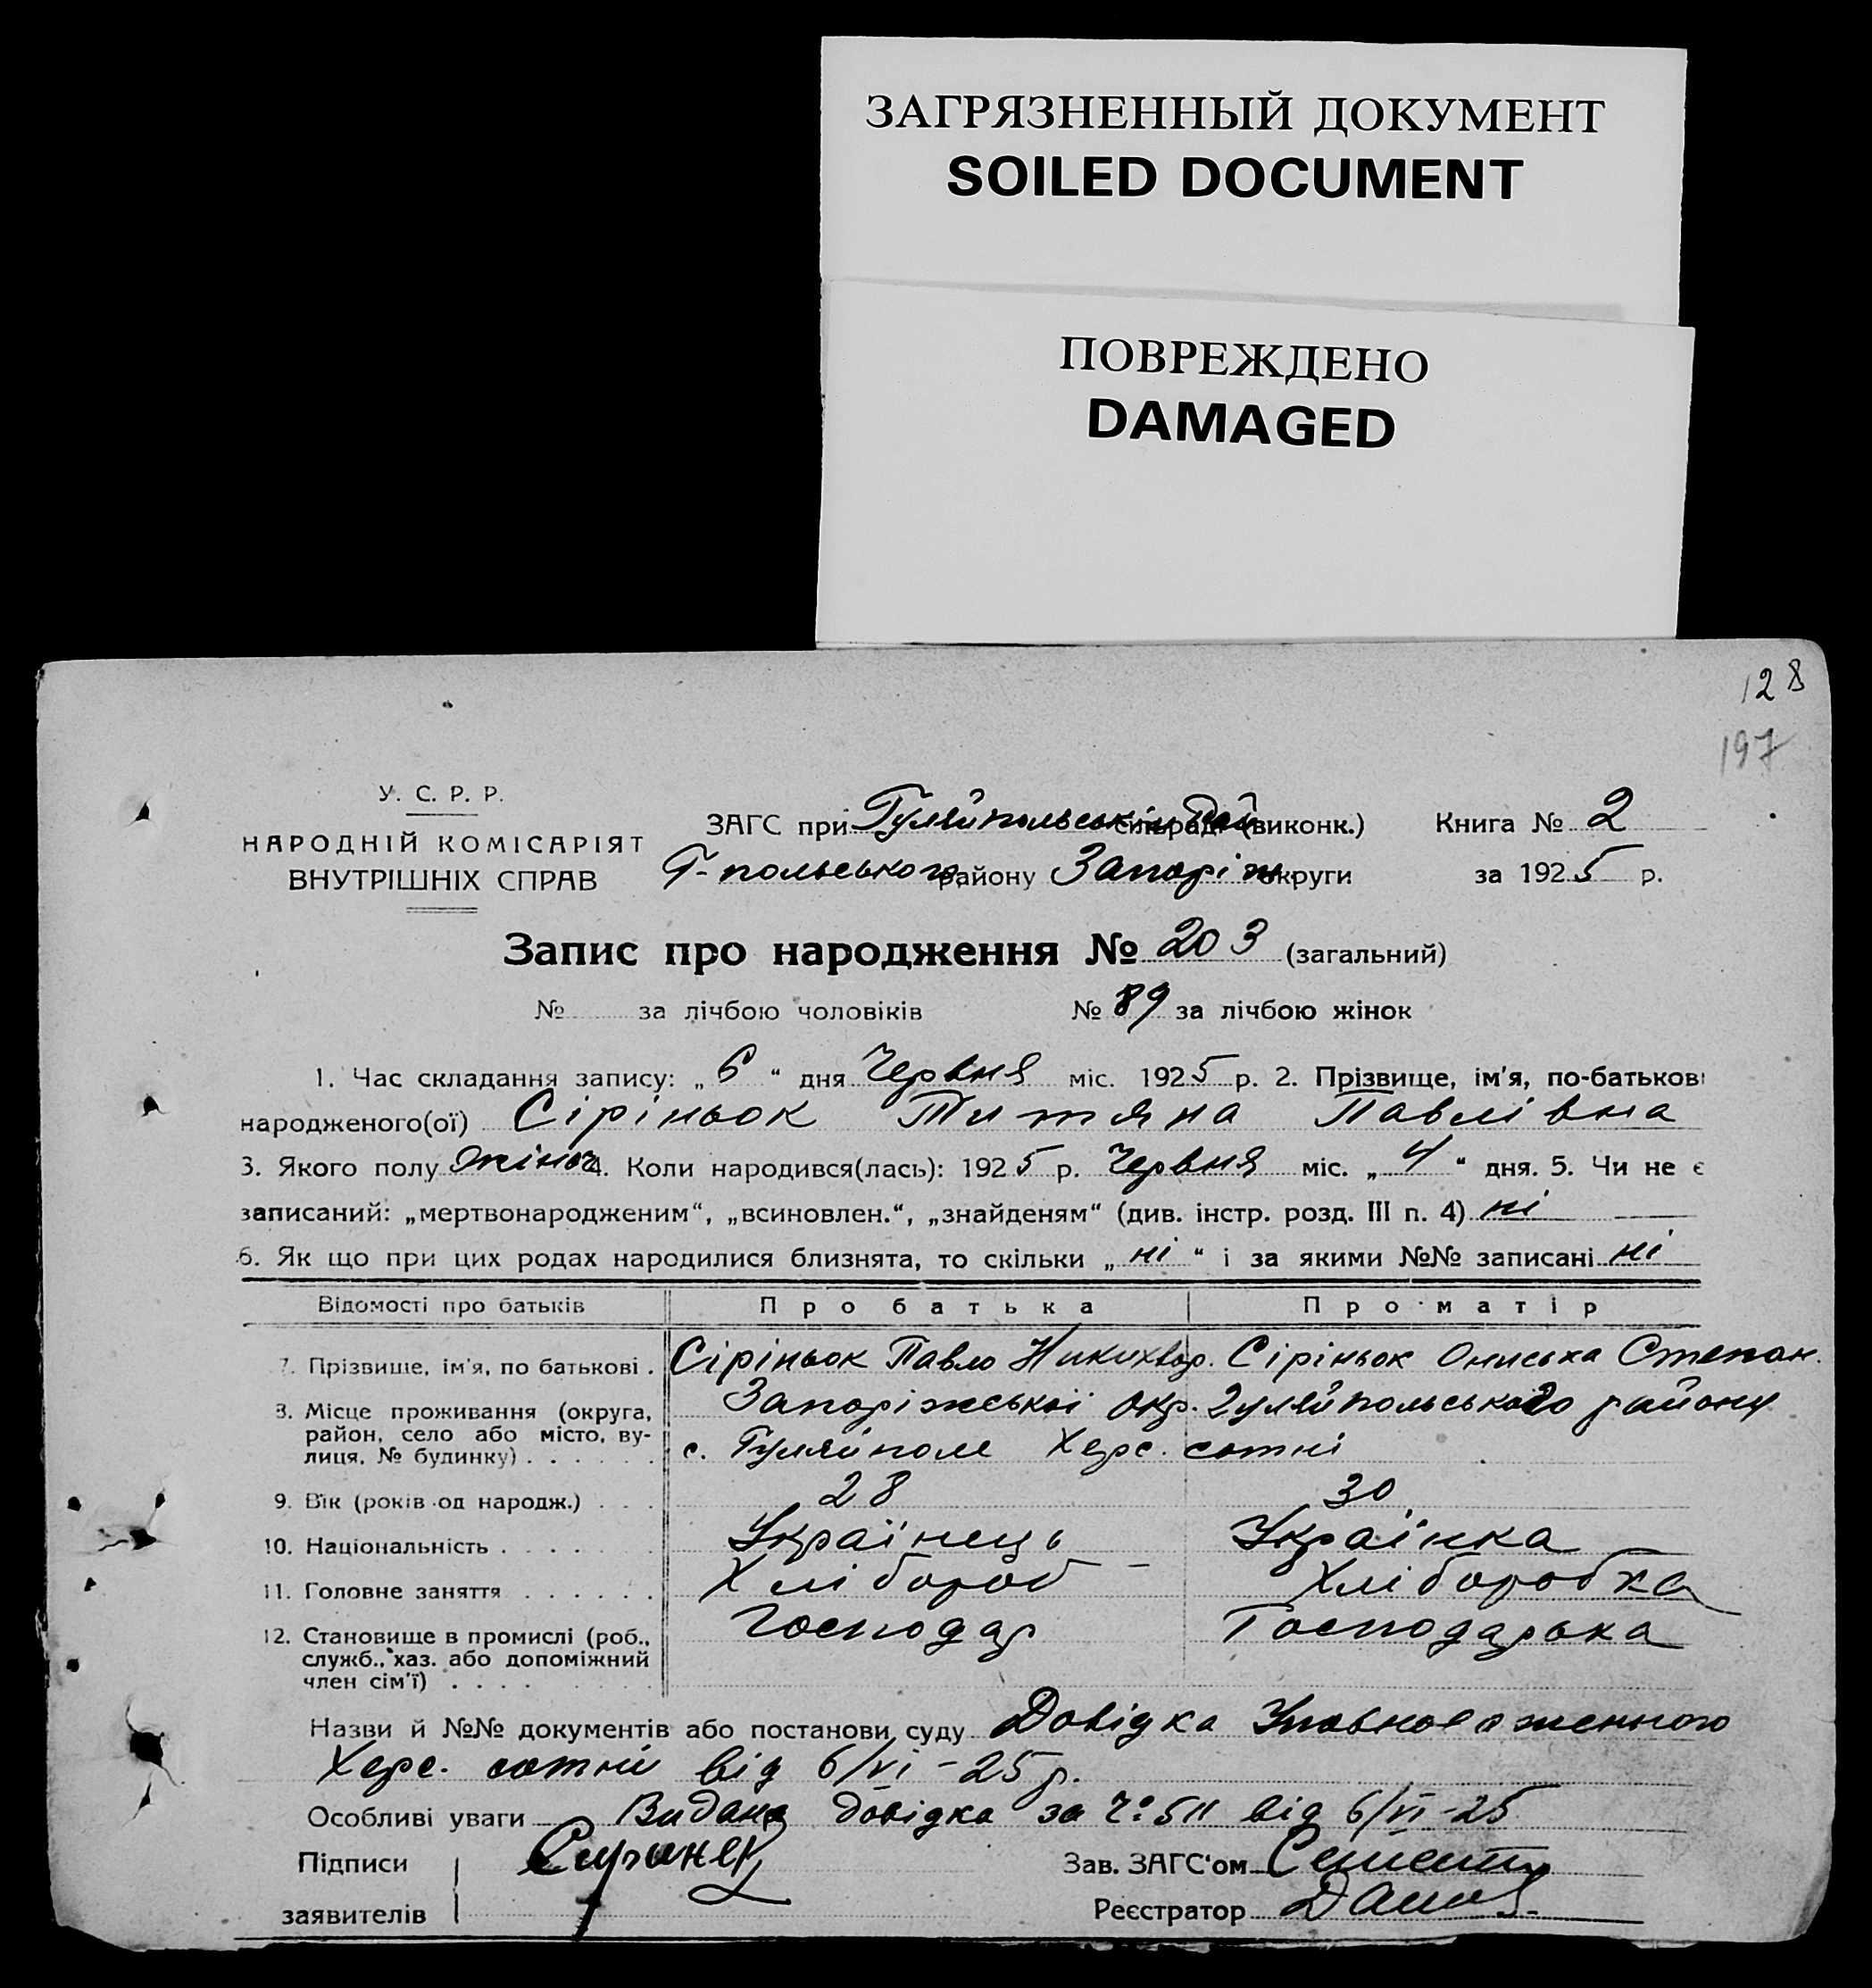 ЗАГРЯЗНЕННЫЙ ДОКУМЕНТ
SOILED DOCUMENT
ПОВРЕЖДЕНО
DAMAGED
128
197
У. С. Р. Р.
НАРОДНІЙ КОМІСАРІЯТ
ВНУТРІШНІХ СПРАВ
ЗАГС при Гуляйпольськім Рай сільраді (виконк.) Книга № 2
Г-польського району Запоріж. округи за 1925 р.
Запис про народження № 203 (загальний)
№ за лічбою чоловіків № 89 за лічбою жінок
1. Час складання запису: „ 6 “ дня Червня міс. 1925 р. 2. Прізвище, ім'я, по-батькові
народженого(ої) Сіріньок Титяна Павлівна
3. Якого полу жіноч 4. Коли народився(лась): 1925 р. Червня міс. „ 4 “ дня. 5. Чи не є
записаний: „мертвонародженим“, „всиновлен.“, „знайденям“ (див. інстр. розд. III п. 4) ні
6. Як що при цих родах народилися близнята, то скільки „ ні “ і за якими №№ записані ні
Відомості про батьків Про батька Про матір
7. Прізвище, ім'я, по батькові . Сіріньок Павло Никихвор. Сіріньок Ониська Степан.
8. Місце проживання (округа, Запоріжської окр. Гуляйпольського району
район, село або місто, ву-
лиця, № будинку) . . . . . . с. Гуляйполе Херс. сотні
9. Вік (років од народж.) . . . 28 30
10. Національність . . . . . . Українець Українка
11. Головне заняття . . . . . . Хлібороб – Хліборобка
12. Становище в промислі (роб., Господар Господарька
служб., хаз. або допоміжний
член сім'ї) . . . .
Назви й №№ документів або постанови суду Довідка Уповноваженного
Херс. сотні від 6/VI – 25 р.
Особливі уваги Видана довідка за Ч: 511 від 6/VI – 25
Підписи Зав. ЗАГС'ом
заявителів Реєстратор